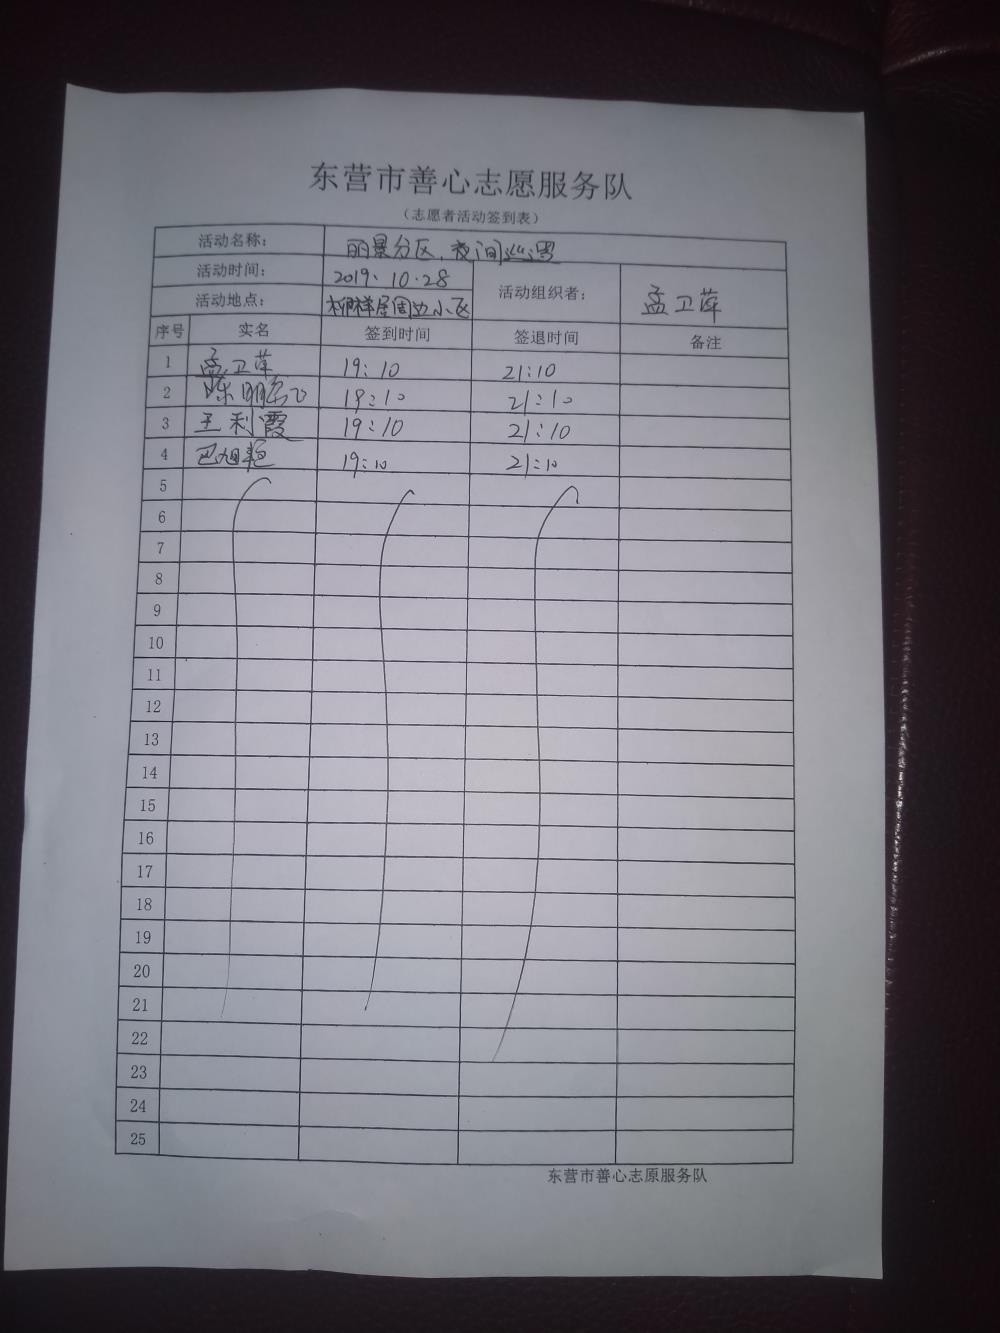 东营市善心志愿服务队
（志愿者活动签到表）
活动名称： 丽景分区、夜间巡逻
活动时间： 2019、10·28 活动组织者： 孟卫萍
活动地点： 周边小区
序号 实名 签到时间 签退时间 备注
1 孟卫萍 19:10 21:10
2 陈明 19:10 21:10
3 王利霞 19:10 21:10
4 巴旭艳 19:10 21:10
5
6
7
8
9
10
11
12
13
14
15
16
17
18
19
20
21
22
23
24
25
东营市善心志原服务队